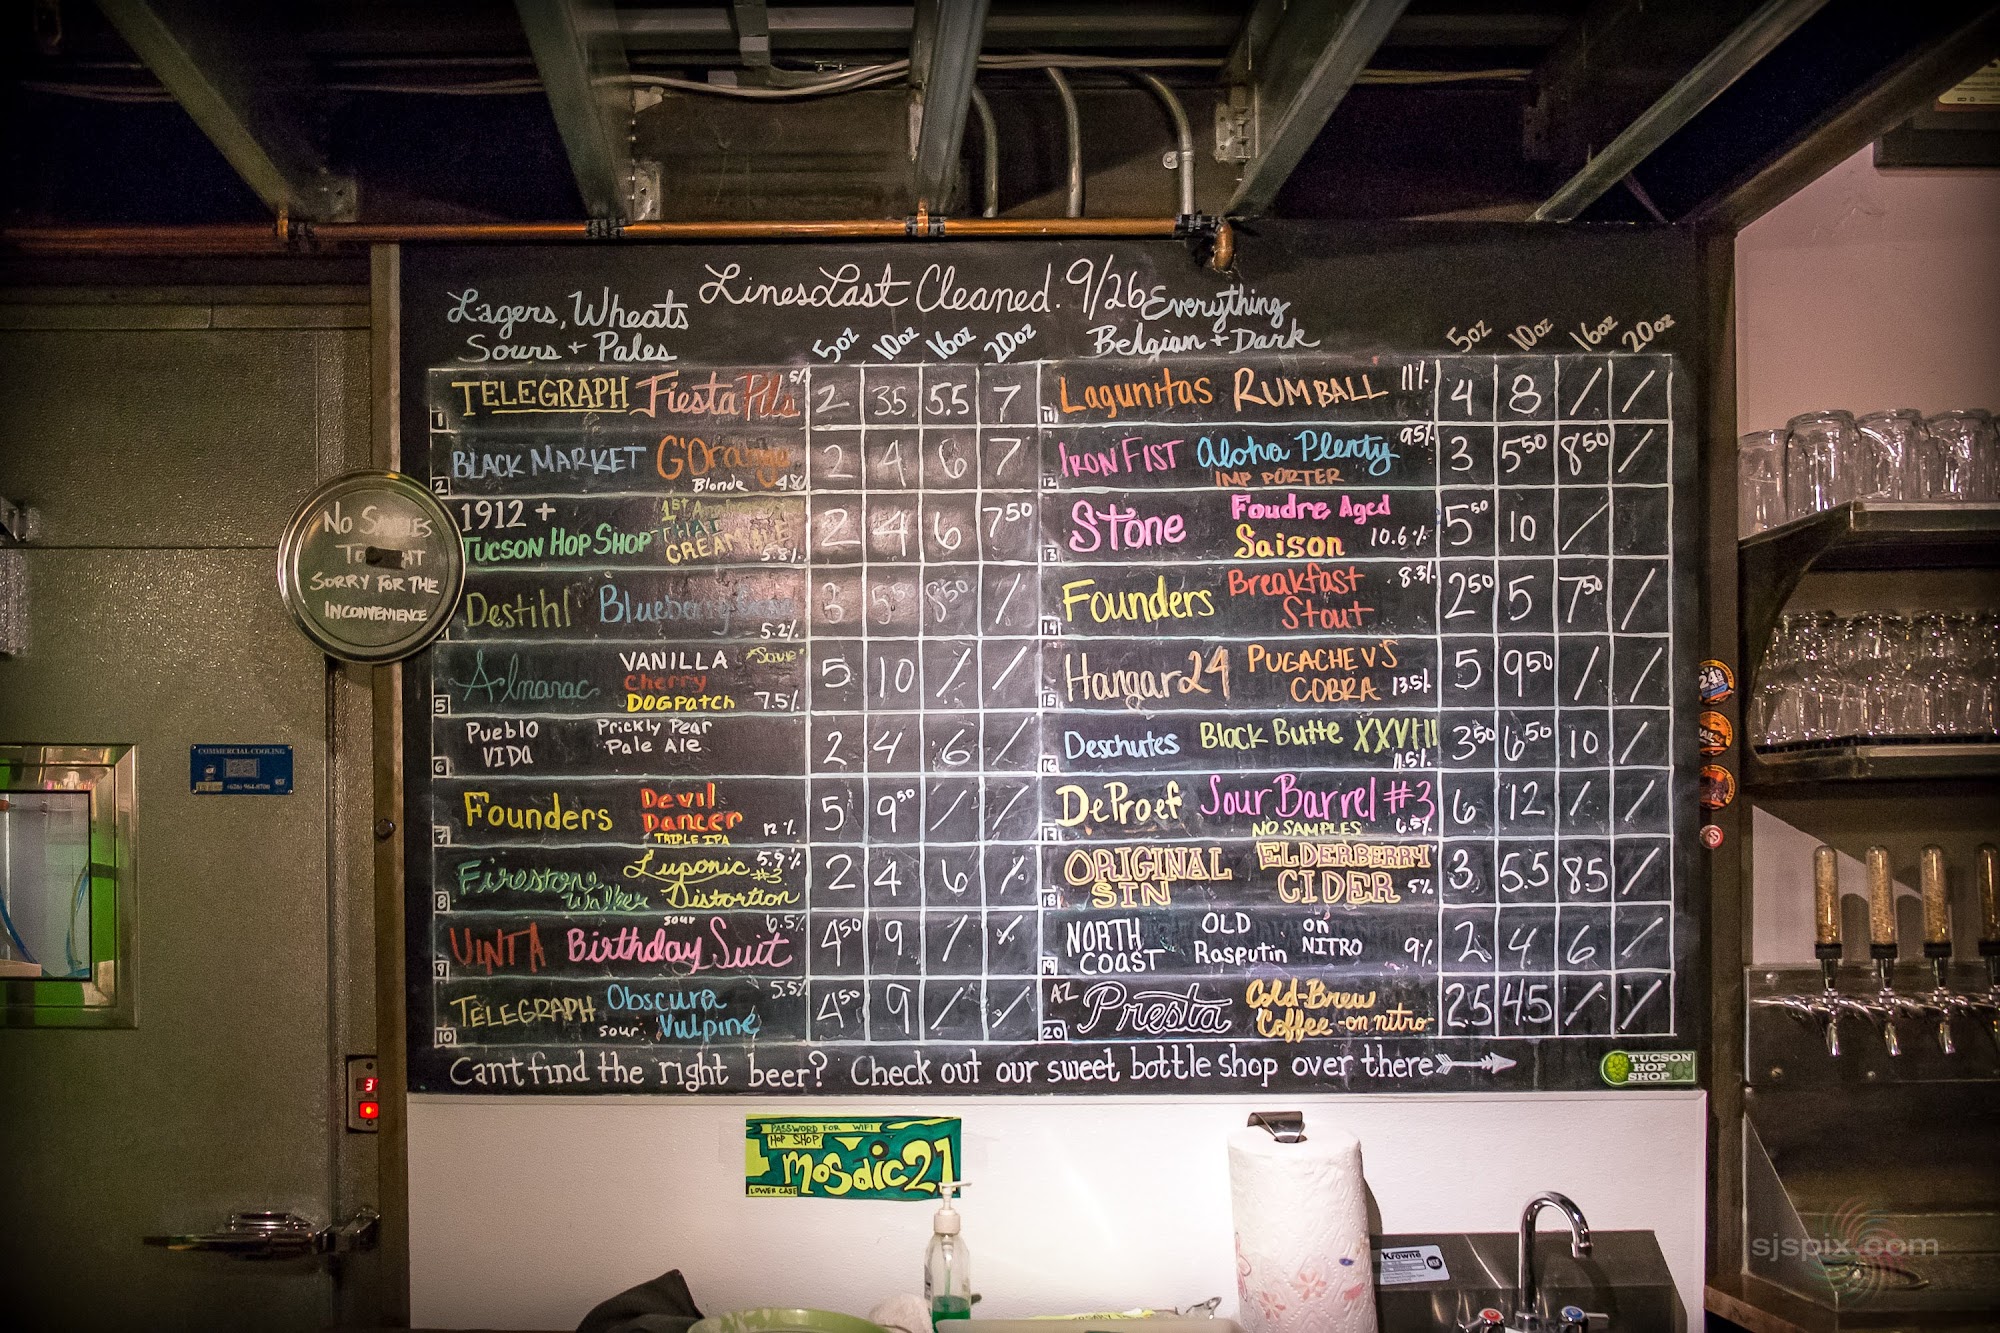 Lines Last Cleaned. 9/26
Lagers, Wheats
Sours + Pales
5oz 10oz 16oz 20oz
1 TELEGRAPH Fiesta Pils 5% 2 35 5.5 7
2 BLACK MARKET G'Orange Blonde 4.8 2 4 6 7
1912 +
TUCSON HOP SHOP
THAT
CREAM ALE 5.8% 2 4 6 7 50
Destihl Blueberry 5.2% 3 5 50 8 50 /
5 Almanac VANILLA "Sour"
Cherry
DOGPATCH 7.5% 5 10 / /
6 Pueblo VIDA Prickly Pear
Pale Ale 2 4 6 /
7 Founders Devil
Dancer
TRIPLE IPA 12% 5 9 50 / /
8 Firestone Walker Luponic #3
Distortion 5.9% 2 4 6 /
9 UINTA Birthday Suit sour 6.5% 4 50 9 / /
10 TELEGRAPH Obscura
sour Vulpine 5.5% 4 50 9 / /
Everything
Belgian + Dark
5oz 10oz 16oz 20oz
11 Lagunitas RUMBALL 11% 4 8 / /
12 IRON FIST Aloha Plenty
IMP PORTER 95% 3 5 50 8 50 /
13 Stone Foudre Aged
Saison 10.6% 5 50 10 /
14 Founders Breakfast
Stout 8.3% 2 50 5 7 50 /
15 Hangar 24 PUGACHEV'S
COBRA 13.5% 5 9 50 / /
16 Deschutes Black Butte XXVIII
11.5% 3 50 6 50 10 /
17 DeProef Sour Barrel #3
NO SAMPLES 6.5% 6 12 / /
18 ORIGINAL
SIN ELDERBERRY
CIDER 5% 3 5.5 85 /
19 NORTH
COAST OLD
Rasputin on
NITRO 9% 2 4 6 /
20 AZ Presta Cold-Brew
Coffee -on nitro- 2.5 4.5 / /
Cant find the right beer? Check out our sweet bottle shop over there
TUCSON
HOP
SHOP
NO SAMPLES
TONIGHT
SORRY FOR THE
INCONVENIENCE
COMMERCIAL COOLING
NSF
3
PASSWORD FOR WIFI
HOP SHOP
mosaic21
LOWER CASE
Krowne
NSF
24
sjspix.com